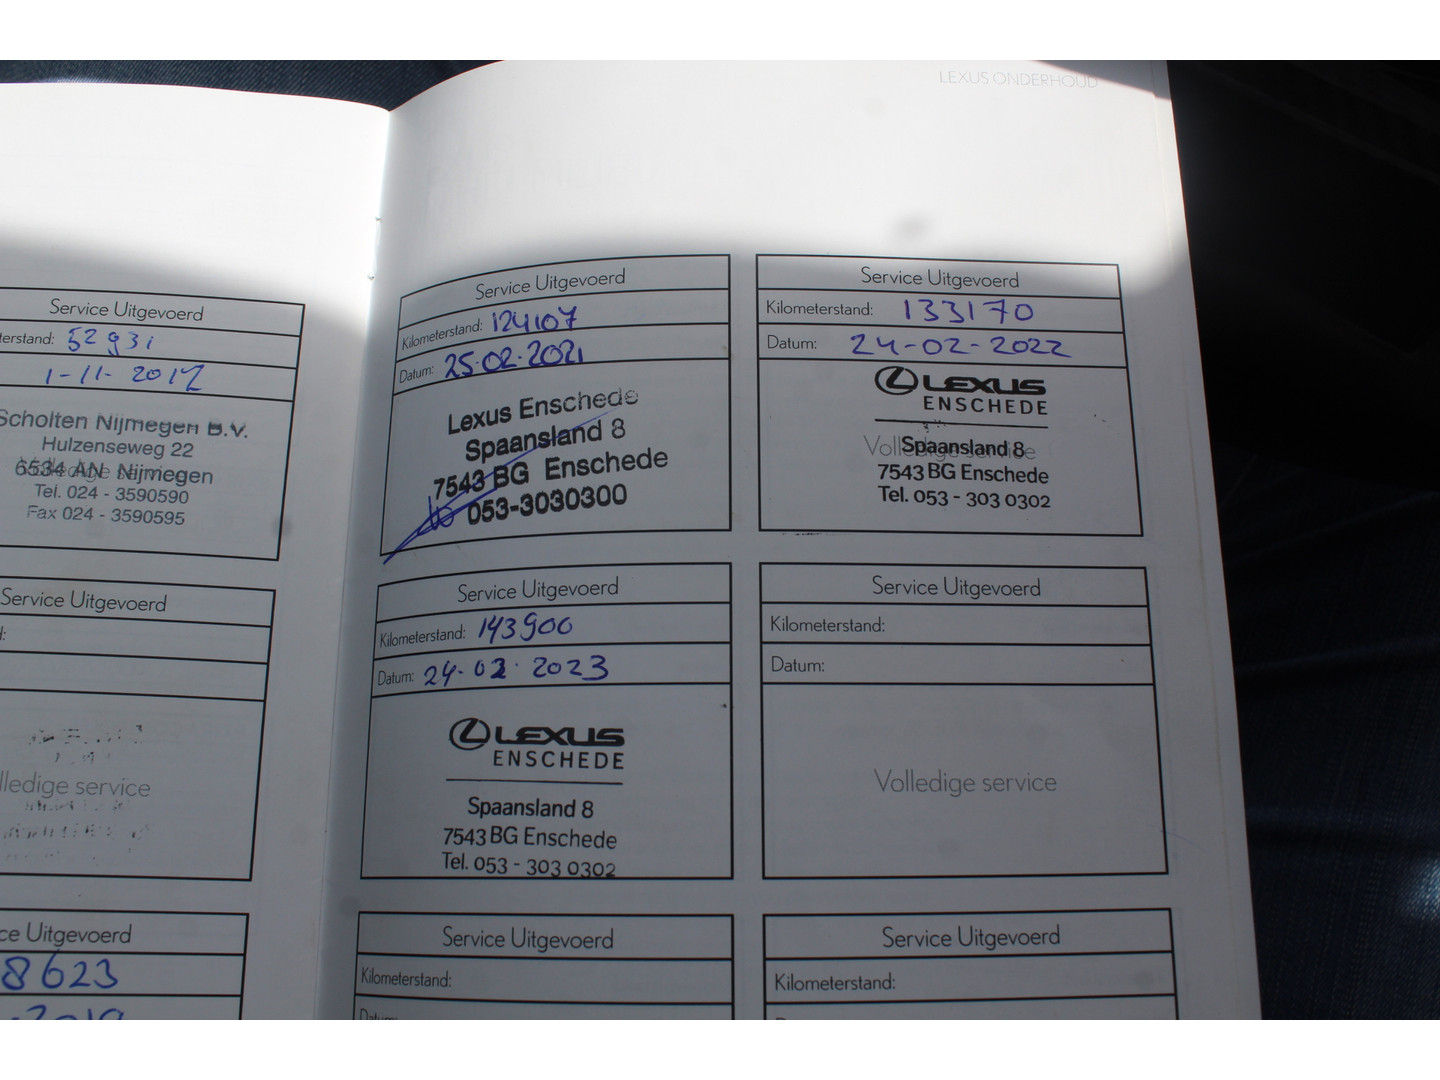 LEXUS ONDERHOUD
Service Uitgevoerd
terstand: 52931
1-11-2017
Scholten Nijmegen B.V.
Hulzenseweg 22
6534 AN Nijmegen
Volledige service
Tel. 024 - 3590590
Fax 024 - 3590595
Service Uitgevoerd
d:
lledige service
ce Uitgevoerd
8623
-2019
Service Uitgevoerd
Kilometerstand: 124107
Datum: 25-02-2021
Lexus Enschede
Spaansland 8
7543 BG Enschede
053-3030300
Service Uitgevoerd
Kilometerstand: 133170
Datum: 24-02-2022
LEXUS
ENSCHEDE
Volledige service
Spaansland 8
7543 BG Enschede
Tel. 053 - 303 0302
Service Uitgevoerd
Kilometerstand: 143900
Datum: 24-02-2023
LEXUS
ENSCHEDE
Spaansland 8
7543 BG Enschede
Tel. 053 - 303 0302
Service Uitgevoerd
Kilometerstand:
Datum:
Volledige service
Service Uitgevoerd
Kilometerstand:
Datum:
Service Uitgevoerd
Kilometerstand: